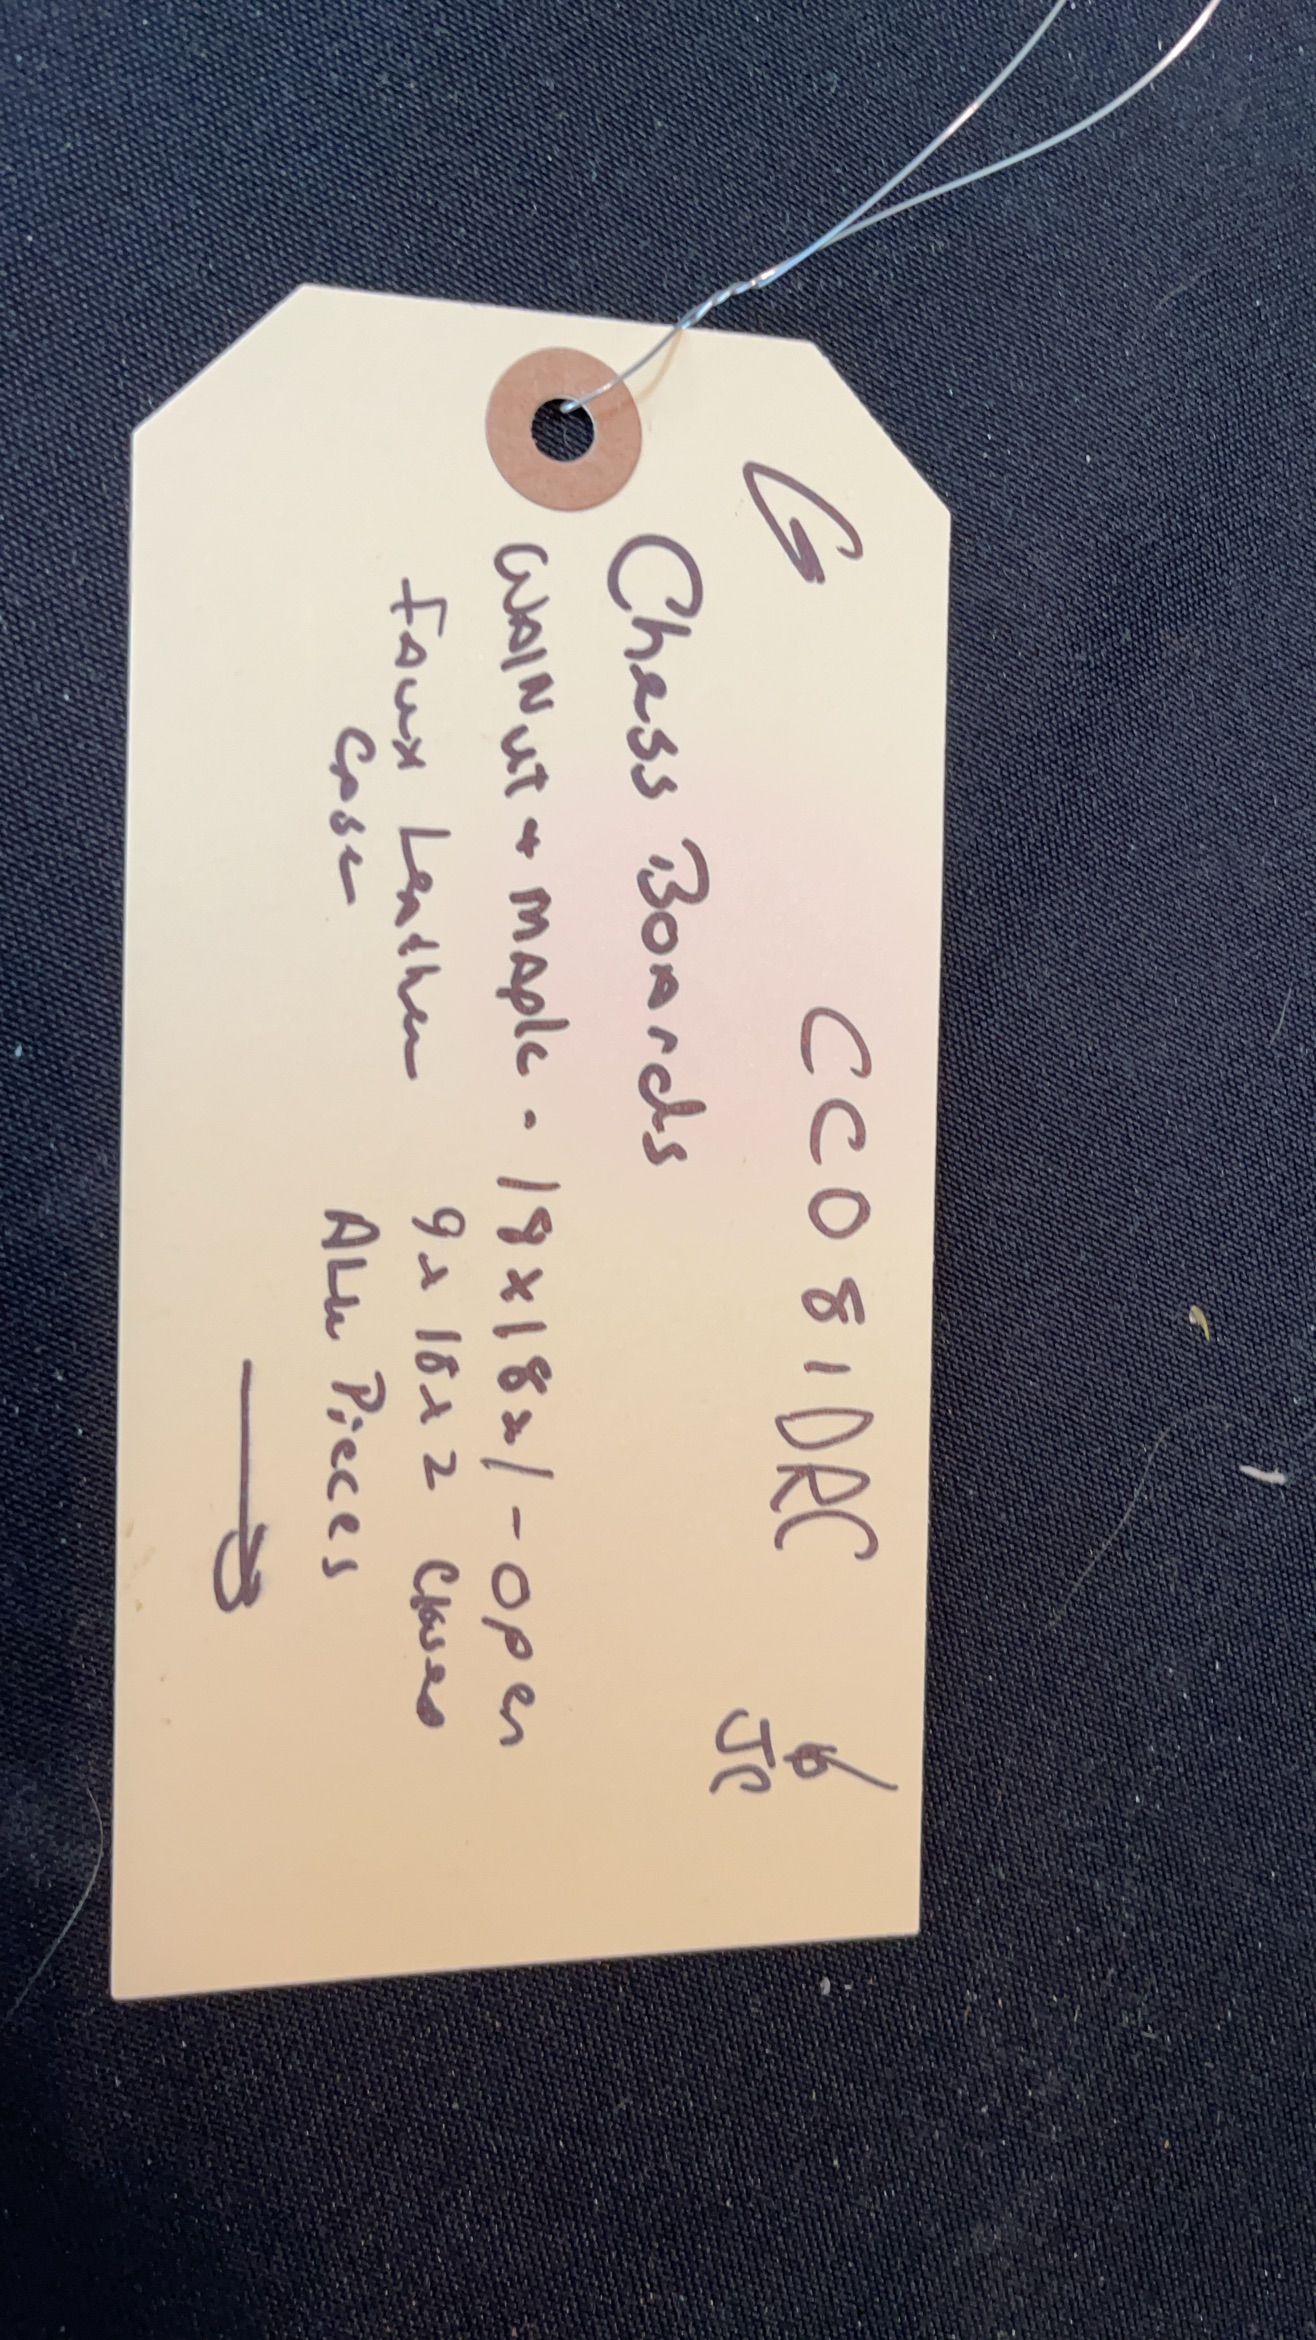 G CC081DRC 6
Chess Boards JC
WALNut + MAple - 18x18x1 - open
Faux Leather 9x18x2 Closed
Case ALL Pieces